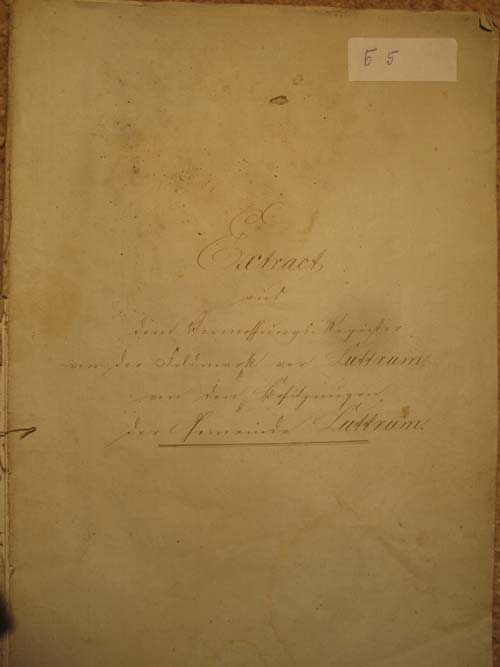 Б 5
Extract
aus
dem Vermessungs-Register
von der Feldmark vor Luttrum,
von den Besitzungen,
der Gemeinde Luttrum.